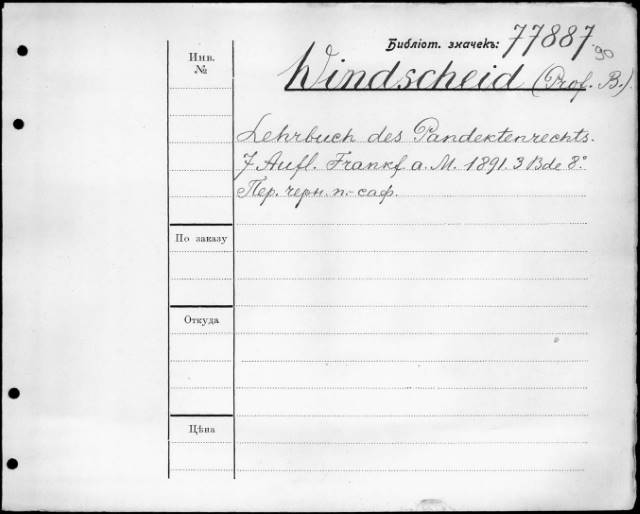 Библіот. значекъ: 77887
90
Инв. №
Windscheid (Prof. B.).
Lehrbuch des Pandektenrechts.
7 Aufl. Frankf. a. M. 1891. 3 Bde 8°.
Пер. черн. п.-саф.
По заказу
Откуда
Цѣна